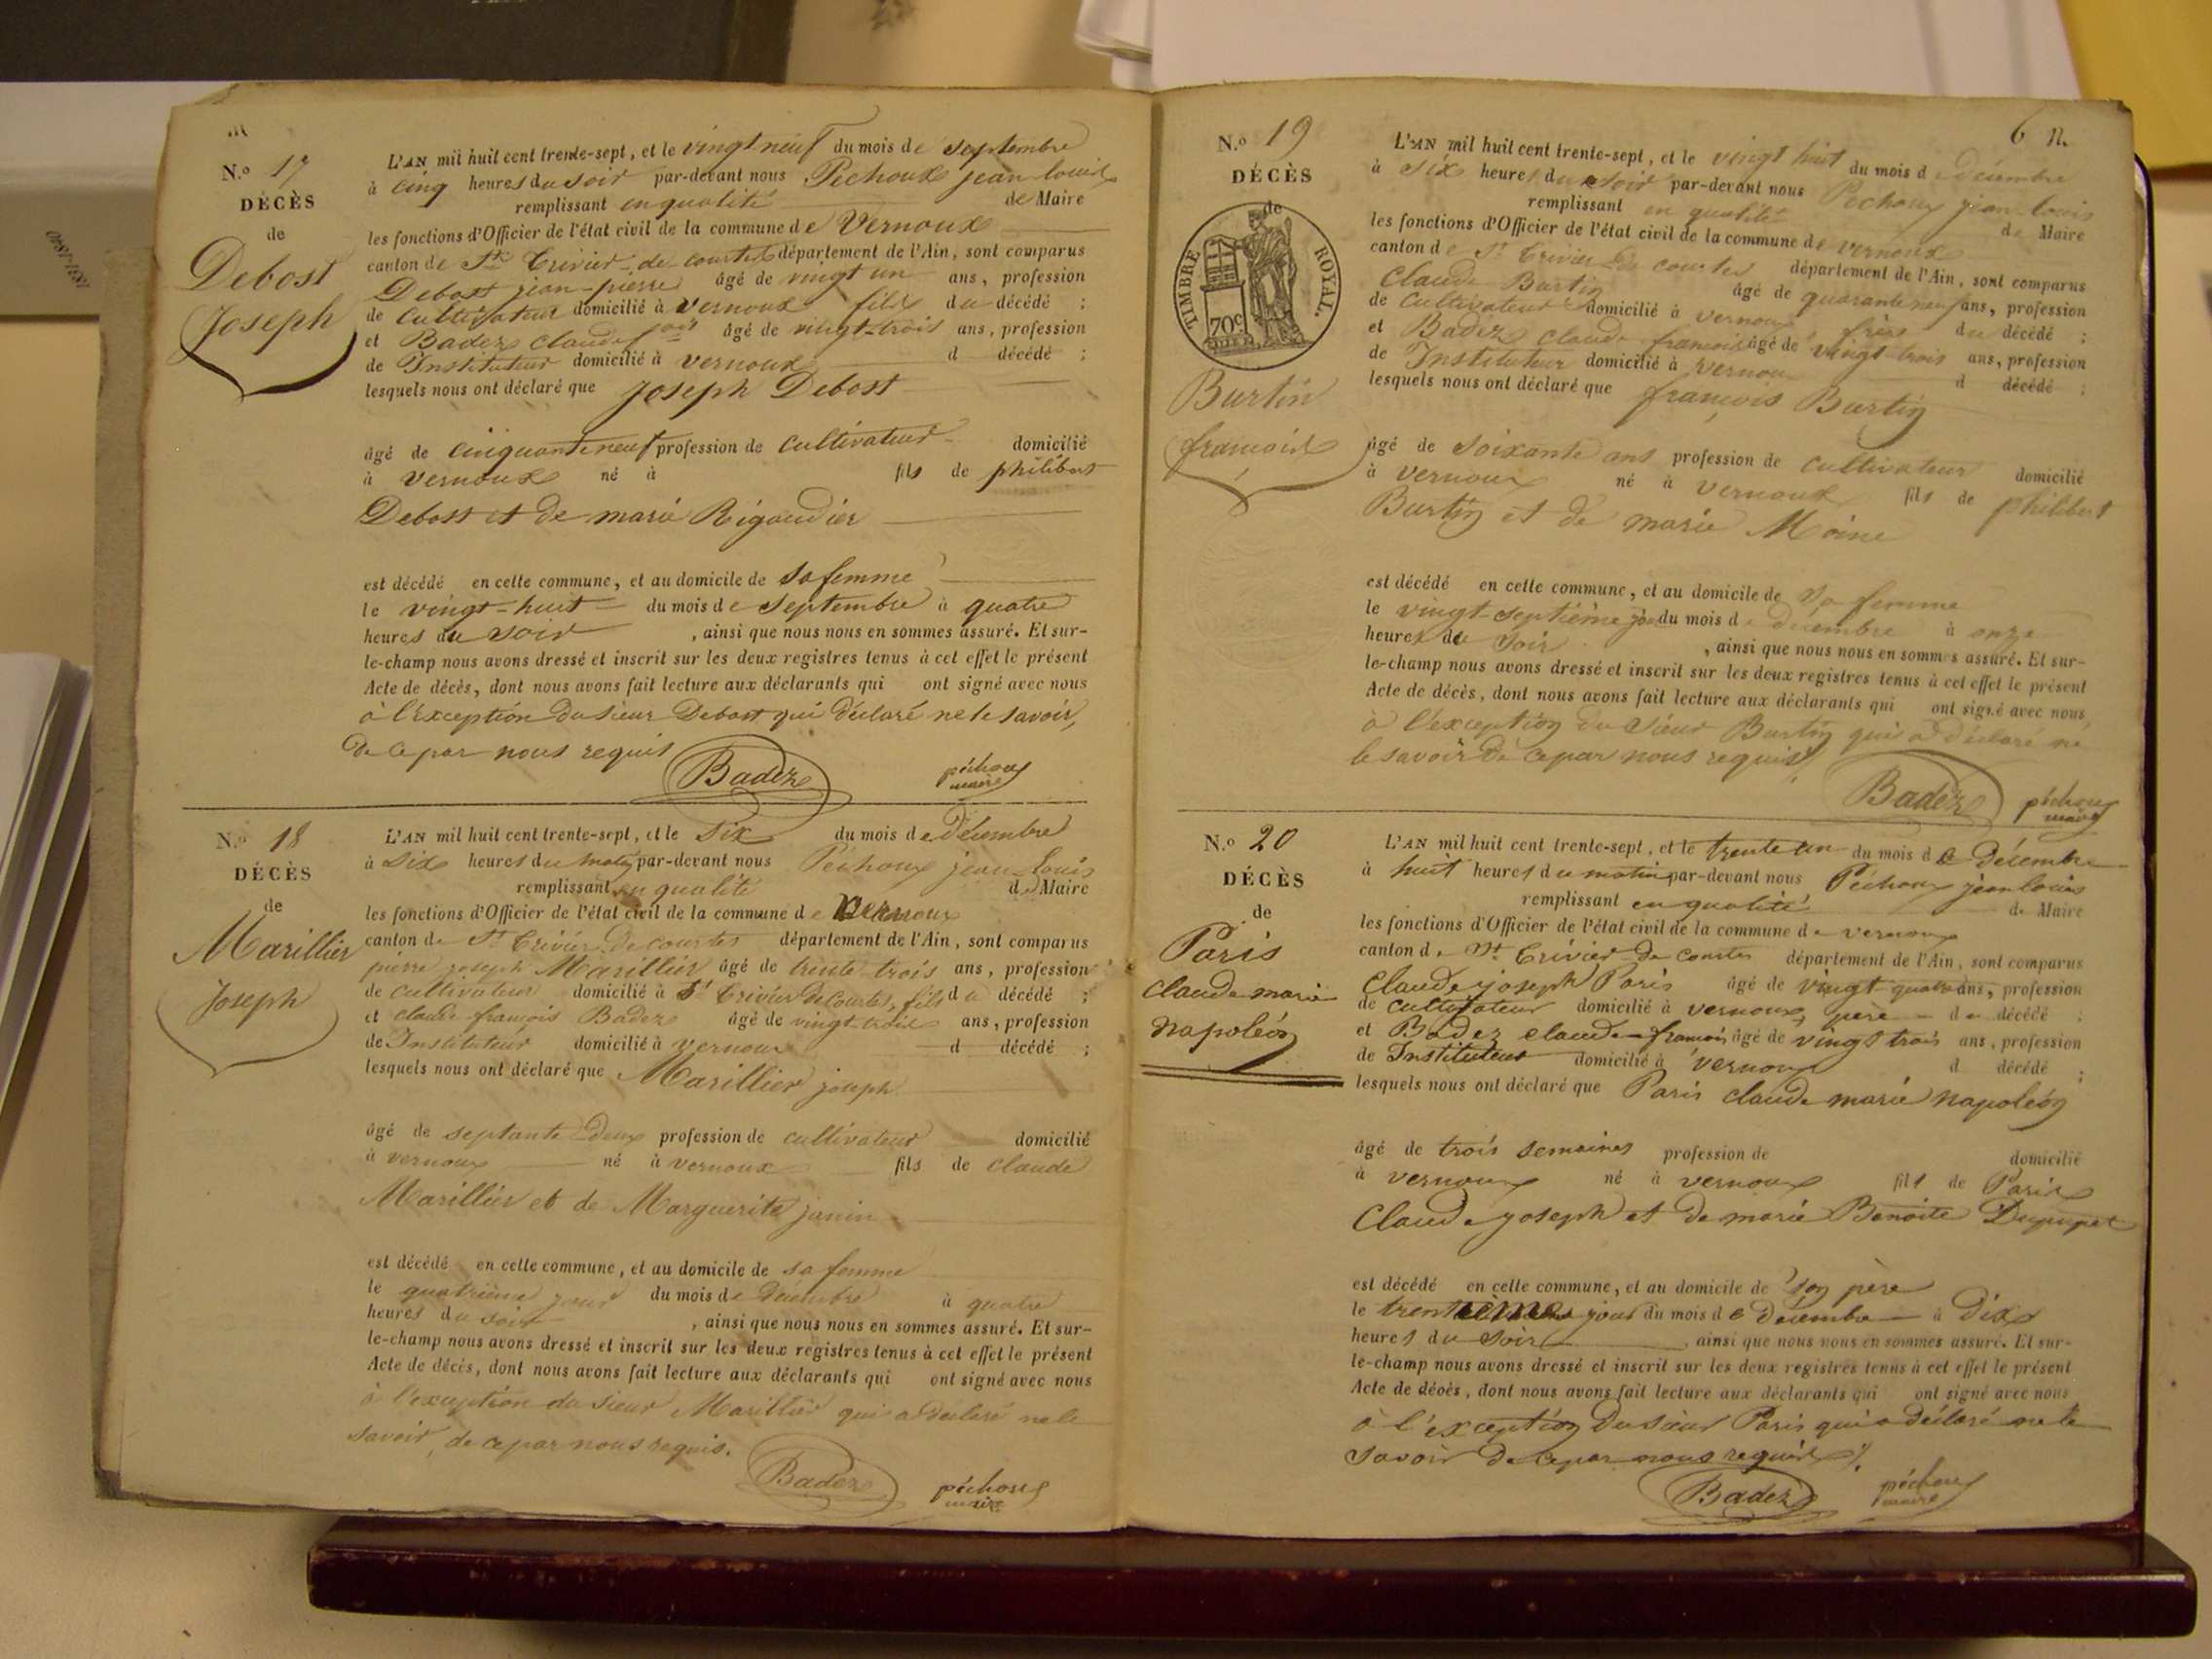 N.º 17
DÉCÈS
de
Debost
Joseph
L'AN mil huit cent trente-sept, et le vingt neuf du mois de septembre
à cinq heures du soir par-devant nous Péchoux jean louis
remplissant en qualité de Maire
les fonctions d'Officier de l'état civil de la commune de Vernoux
canton de St Trivier de courtes département de l'Ain, sont comparus
Debost jean-pierre âgé de vingt un ans, profession
de Cultivateur domicilié à Vernoux fils du décédé ;
et Badez Claude fçois âgé de vingt-trois ans, profession
de Instituteur domicilié à vernoux d décédé ;
lesquels nous ont déclaré que Joseph Debost
âgé de cinquante neuf profession de cultivateur domicilié
à vernoux né à fils de philibert
Debost et de marie Rigaudier
est décédé en cette commune, et au domicile de sa femme
le vingt-huit du mois de Septembre à quatre
heures du soir , ainsi que nous nous en sommes assuré. Et sur-
le-champ nous avons dressé et inscrit sur les deux registres tenus à cet effet le présent
Acte de décès, dont nous avons fait lecture aux déclarants qui ont signé avec nous
à l'exception du sieur Debost qui déclaré ne le savoir,
de ce par nous requis
Badez péchoux
maire
N.º 18
DÉCÈS
de
Marillier
Joseph
L'AN mil huit cent trente-sept, et le six du mois de décembre
à six heures du matin par-devant nous Péchoux jean-louis
remplissant en qualité de Maire
les fonctions d'Officier de l'état civil de la commune de Vernoux
canton de St Trivier de courtes département de l'Ain, sont comparus
pierre joseph Marillier âgé de trente trois ans, profession
de cultivateur domicilié à St Trivier de Courtes, fils du décédé ;
et claude françois Badez âgé de vingt-trois ans, profession
de Instituteur domicilié à vernoux d décédé ;
lesquels nous ont déclaré que Marillier joseph
âgé de septante deux profession de cultivateur domicilié
à vernoux né à vernoux fils de claude
Marillier et de Marguerite janin
est décédé en cette commune, et au domicile de sa femme
le quatrième jour du mois de décembre à quatre
heures du soir , ainsi que nous nous en sommes assuré. Et sur-
le-champ nous avons dressé et inscrit sur les deux registres tenus à cet effet le présent
Acte de décès, dont nous avons fait lecture aux déclarants qui ont signé avec nous
à l'exception du sieur Marillier qui a déclaré ne le
savoir, de ce par nous requis.
Badez péchoux
maire
6
N.º 19
DÉCÈS
de
TIMBRE ROYAL.
70c
Burtin
françois
L'AN mil huit cent trente-sept, et le vingt huit du mois d décembre
à six heures du soir par-devant nous Péchoux jean-louis
remplissant en qualité de Maire
les fonctions d'Officier de l'état civil de la commune de vernoux
canton de St Trivier de courtes département de l'Ain, sont comparus
Claude Burtin âgé de quarante neuf ans, profession
de cultivateur domicilié à vernoux frère du décédé ;
et Badez claude françois âgé de vingt trois ans, profession
de Instituteur domicilié à vernoux d décédé ;
lesquels nous ont déclaré que françois Burtin
âgé de soixante ans profession de cultivateur domicilié
à vernoux né à vernoux fils de philibert
Burtin et de marie Moine
est décédé en cette commune, et au domicile de sa femme
le vingt-septième jour du mois de décembre à onze
heures du soir , ainsi que nous nous en sommes assuré. Et sur-
le-champ nous avons dressé et inscrit sur les deux registres tenus à cet effet le présent
Acte de décès, dont nous avons fait lecture aux déclarants qui ont signé avec nous
à l'exception du sieur Burtin qui a déclaré ne
le savoir de ce par nous requis
Badez péchoux
maire
N.º 20
DÉCÈS
de
Paris
claude marie
napoléon
L'AN mil huit cent trente-sept, et le trente un du mois de décembre
à huit heures du matin par-devant nous Péchoux jean louis
remplissant en qualité de Maire
les fonctions d'Officier de l'état civil de la commune de vernoux
canton de St Trivier de courtes département de l'Ain, sont comparus
Claude joseph Paris âgé de vingt quatre ans, profession
de cultivateur domicilié à vernoux, père du décédé ;
et Badez claude-françois âgé de vingt trois ans, profession
de Instituteur domicilié à vernoux d décédé ;
lesquels nous ont déclaré que Paris claude marie napoléon
âgé de trois semaines profession de domicilié
à vernoux né à vernoux fils de Paris
Claude joseph et de marie Benoite Dupupet
est décédé en cette commune, et au domicile de son père
le trentième jour du mois de décembre à dix
heures du soir , ainsi que nous nous en sommes assuré. Et sur-
le-champ nous avons dressé et inscrit sur les deux registres tenus à cet effet le présent
Acte de décès, dont nous avons fait lecture aux déclarants qui ont signé avec nous
à l'exception du sieur Paris qui a déclaré ne le
savoir de ce par nous requis.
Badez péchoux
maire